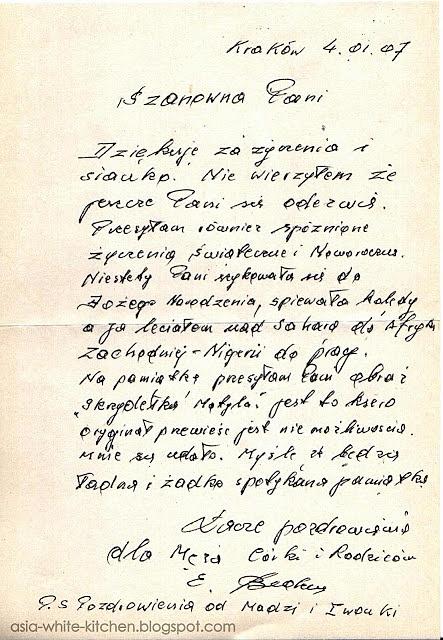 Kraków 4.01.07
Szanowna Pani
Dziękuję za życzenia i
sianko. Nie wierzyłem że
jeszcze Pani się odezwie.
Przesyłam również spóźnione
życzenia świąteczne i Noworoczne.
Niestety Pani szykowała się do
Bożego Narodzenia, śpiewała kolędy
a ja leciałem nad Saharą do Afryki
Zachodniej - Nigerii do pracy.
Na pamiątkę przesyłam Pani obraz
"Skrzydełka Motyla" jest to ksero
oryginał przewieść jest nie możliwością.
Mnie się udało. Myślę że będzie
ładna i żadko spotykana pamiątka
Łącze pozdrowienia
dla Męża Córki i Rodziców
E.
P.S Pozdrowienia od Madzi i Iwonki
asia-white-kitchen.blogspot.com